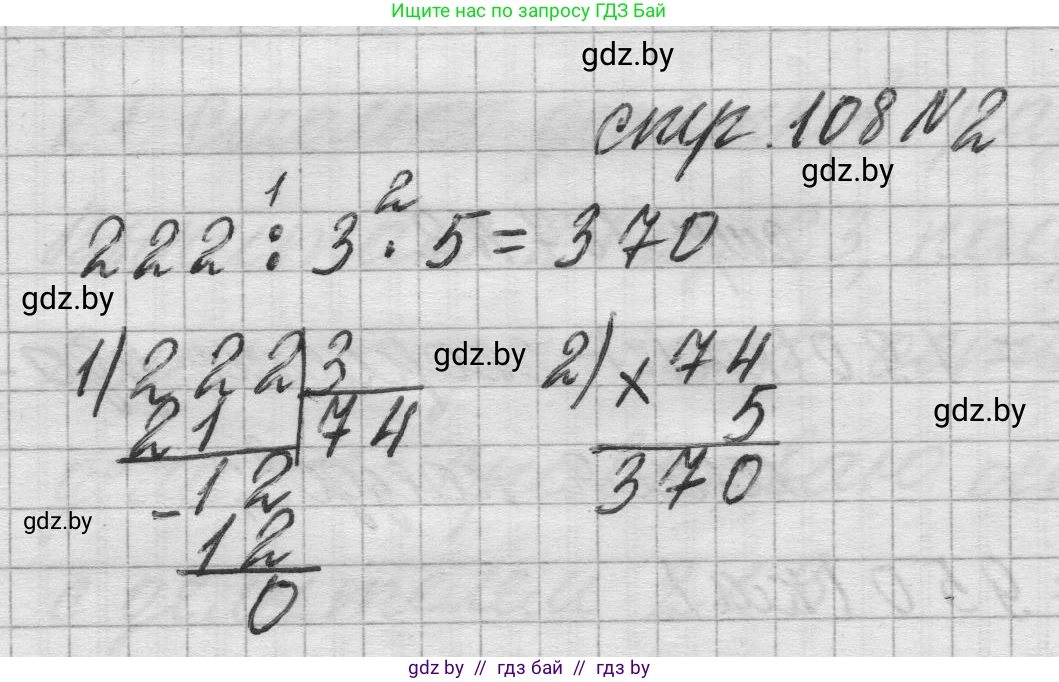 Ищите нас по запросу ГДЗ Бай
gdz.by
стр. 108 №2
gdz.by
1 2
222 : 3 · 5 = 370
gdz.by
1) 222 | 3
21 74
- 12
12
0
gdz.by
2) × 74
5
370
gdz.by
gdz.by
gdz by // гдз бай // гдз by